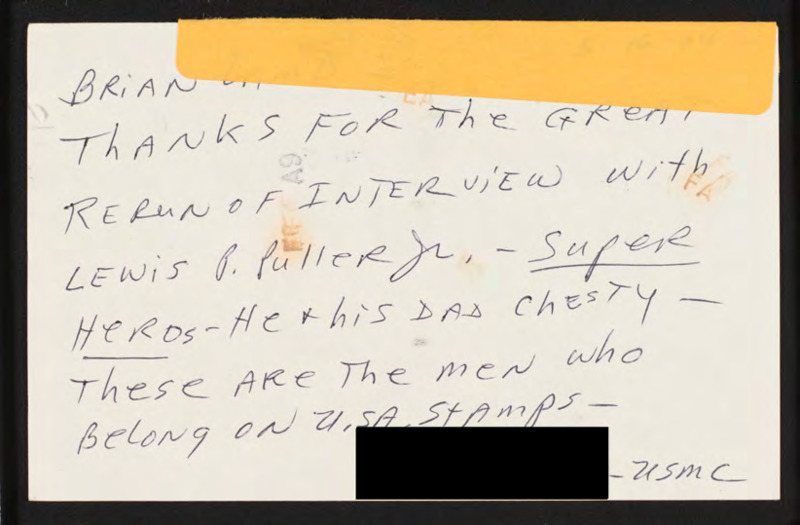 BRiAN
THANKS FOR The GREAT
RERUN OF INTERViEW with
LEWiS B. PullER Jr. - SupeR
HeROs - He & hiS DAD ChESTY -
These ARe The meN who
BeLONg ON U.SA. StAmpS -
- USMC
A9